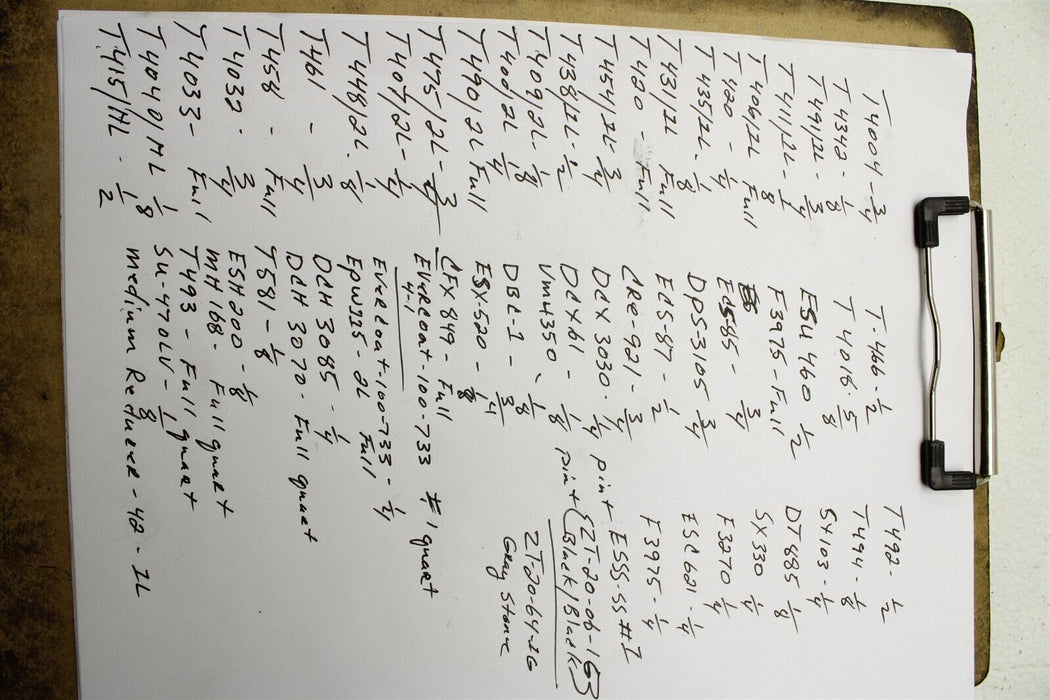 T 4004 - 3/4
T-4342 - 1/8
T 491/2L - 3/4
T 411/2L - 1/4
T 406/2L Full
T 420 - 1/4
T 435/2L - 1/8
T 431/2L Full
T 420 - Full
T 454/2L - 3/4
T 438/2L - 1/2
T 409/2L - 1/8
T 400/2L 1/4
T 490/2L Full
T 475/2L - 3/4
T 407/2L - 1/4
T 448/2L - 1/8
T 461 - 3/4
T 458 - Full
T 4032 - 3/4
T 4033 - Full
T 4040/ML 1/8
T 415/ML - 1/2
T-466 - 1/2
T 4016 - 5/8
FSU 460 1/2
F3975 - Full
EC585 - 3/4
DPS3105 3/4
ECS-87 - 1/2
CRE-921 - 3/4
DCX 3030 - 1/4 pint
DCX61 - 1/8 pint
VM4350 - 1/8
DBC-1 - 3/4
ESX520 - 1/4
CFX 849 - Full
Evercoat-100-733 # 1 quart
4-1
Evercoat-100-733 - 1/4
EPW115 - 2L Full
DCH 3085 - 1/4
DCH 3070 - Full quart
T581 - 1/8
ESH200 - 1/8
MH168 - Full quart
T493 - Full quart
SU-470LV - 1/8
medium Reducer - 42 - 1L
T492 - 1/2
T494 - 1/8
SX103 - 1/4
DT885 1/8
SX330 1/4
F3270 1/4
ESC621 - 1/4
F3975 - 1/4
ESSS-SS #1
ZT-20-06-163
(Black/Black)
ZT-20-64-26
Gray Stone